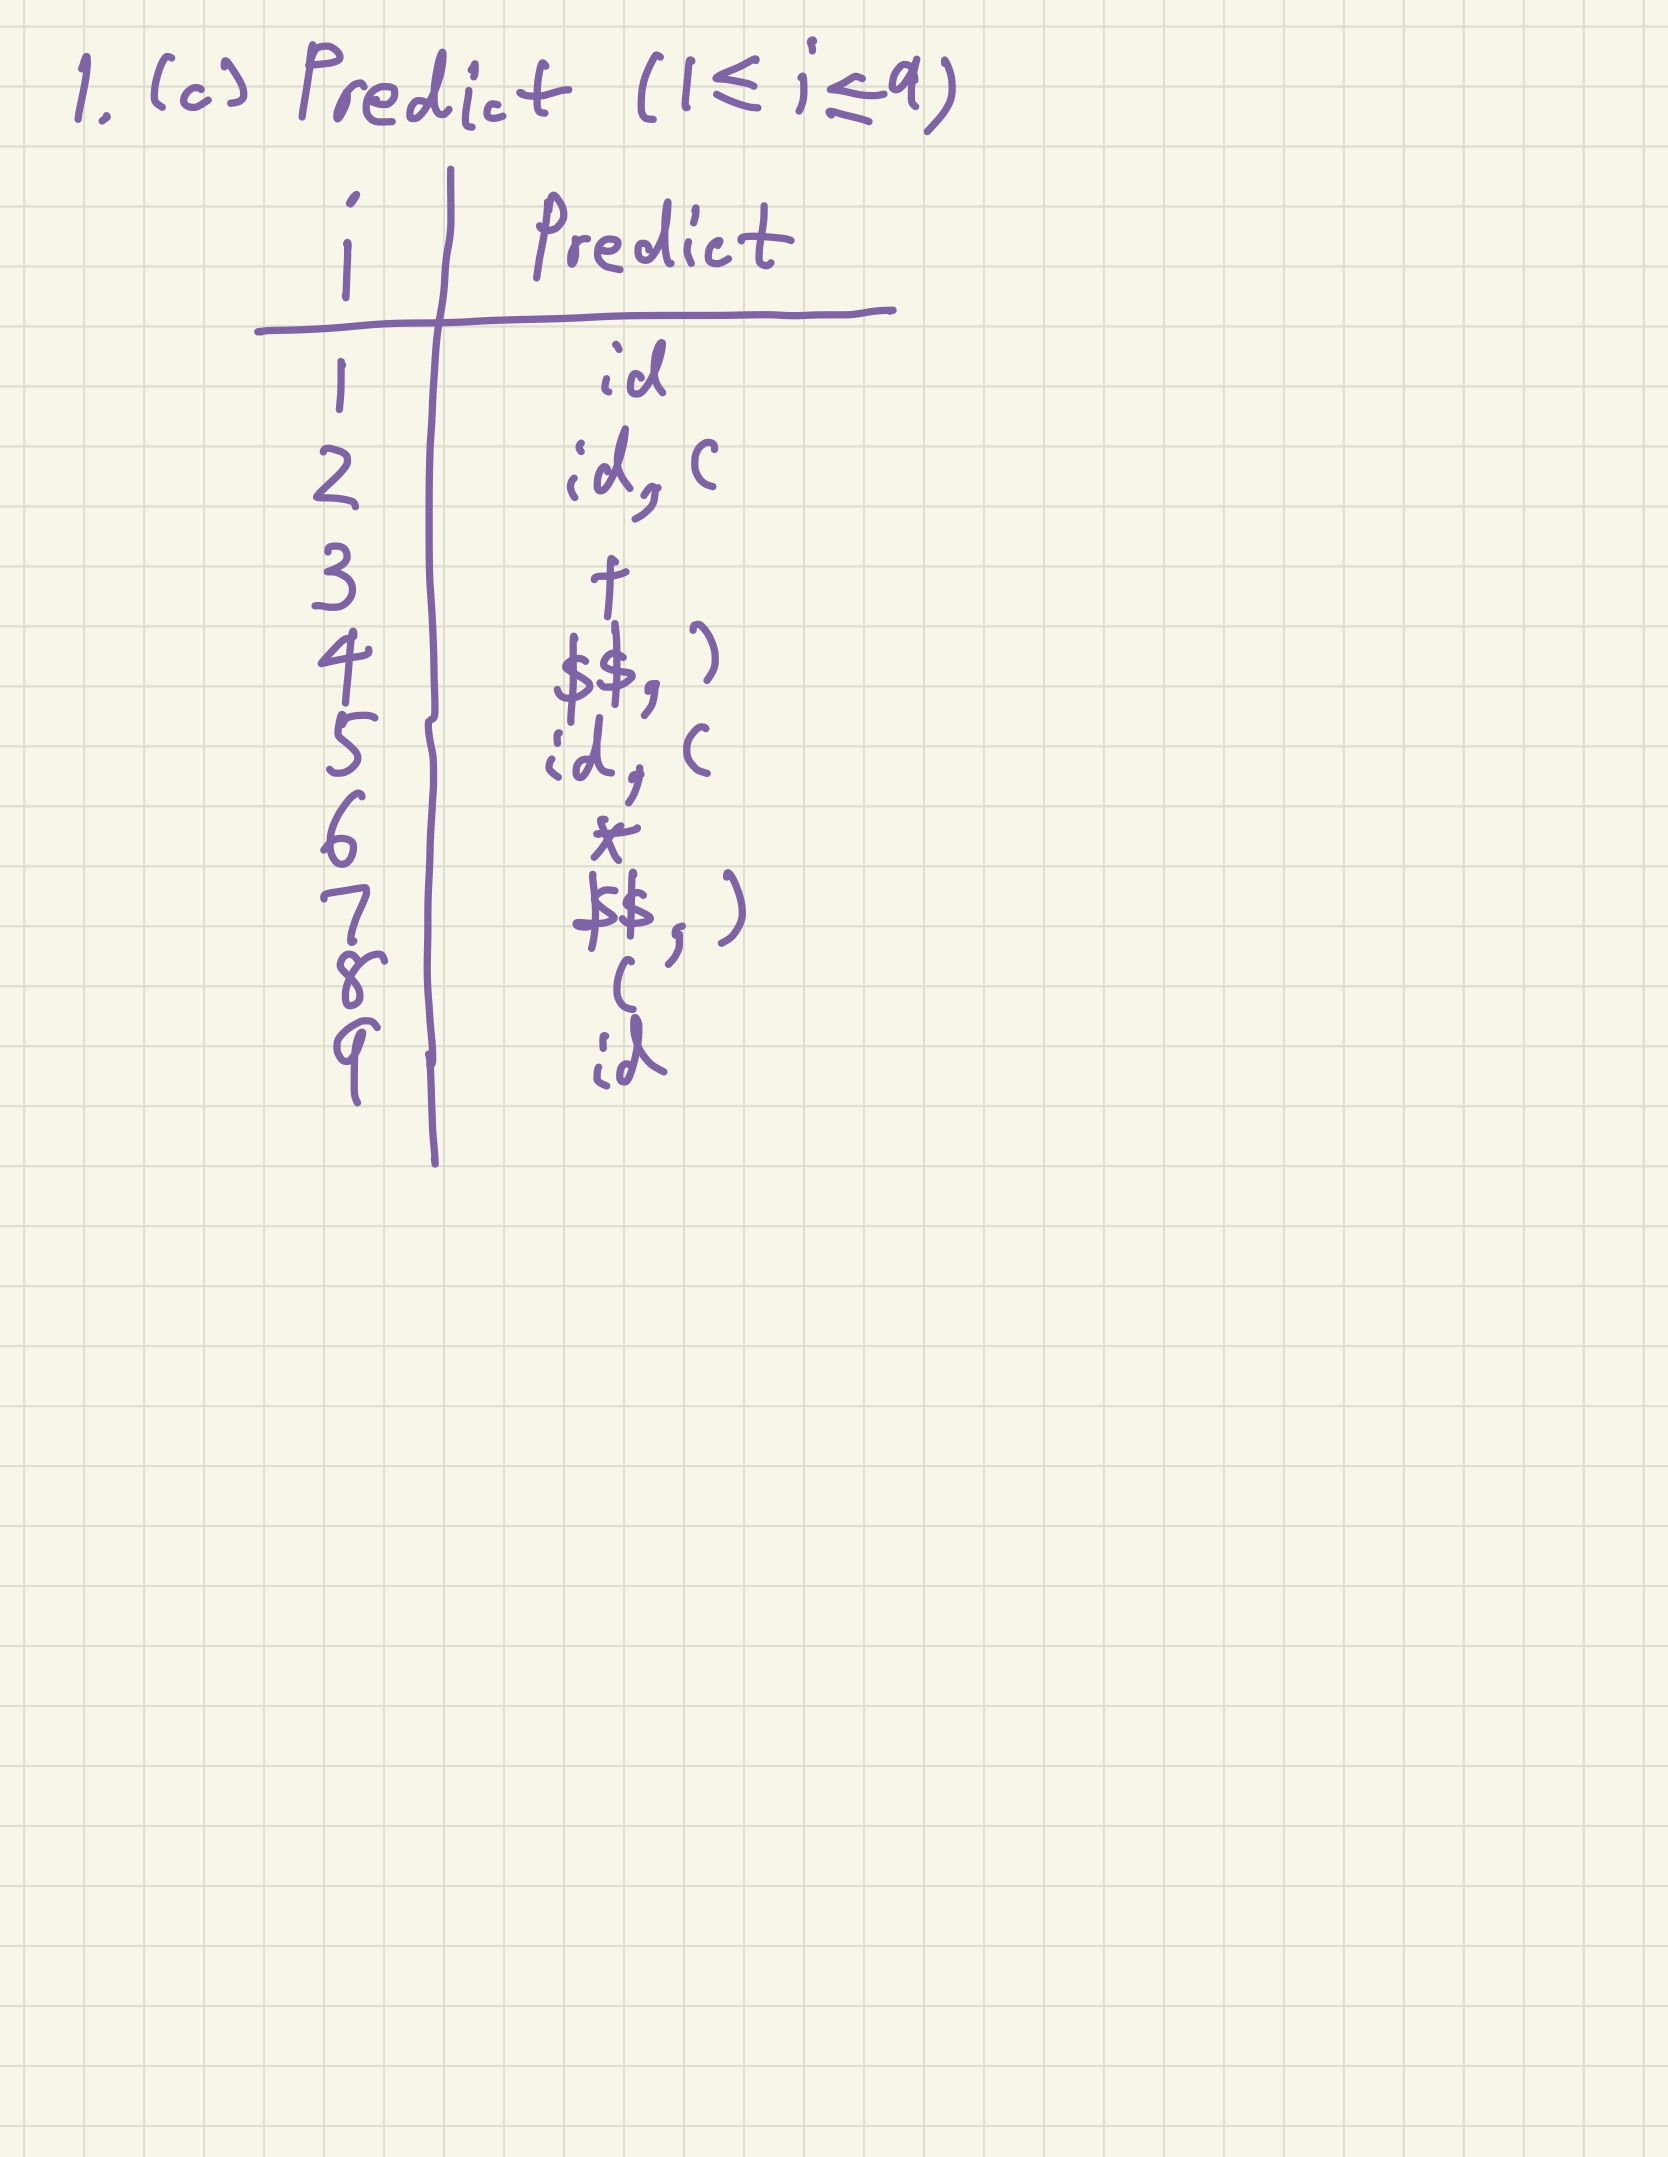 1. (c) Predict (1 ≤ i ≤ 9)
i | Predict
1 | id
2 | id, (
3 | +
4 | $$, )
5 | id, (
6 | *
7 | $$, )
8 | (
9 | id